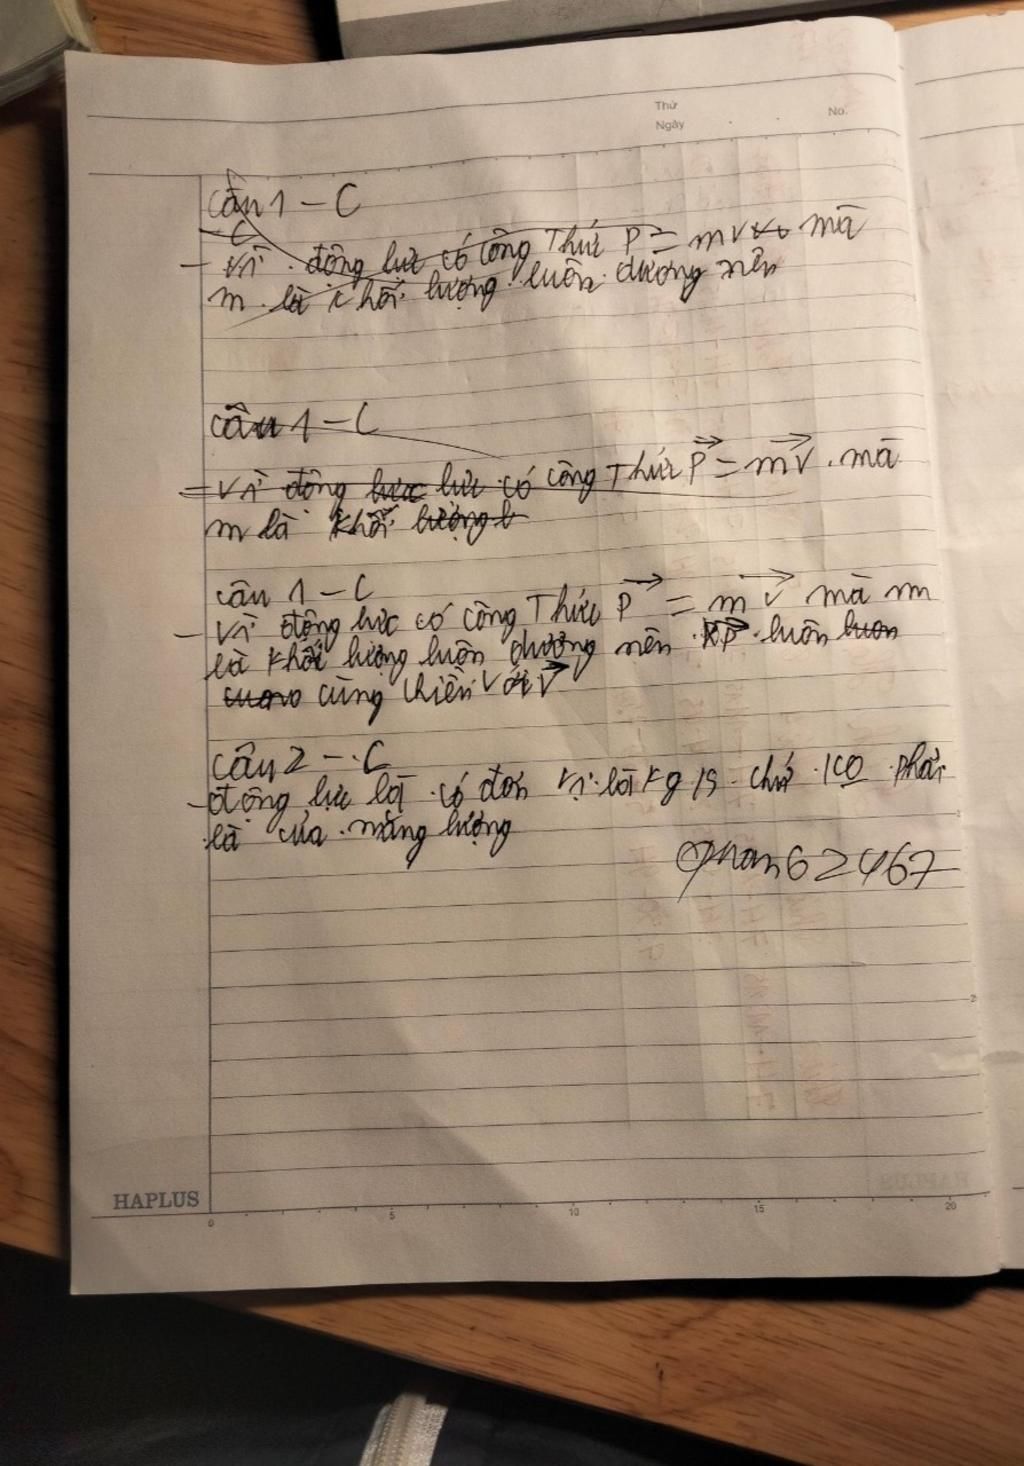 Thứ
Ngày
No.
Câu 1 - C
C
- Vì động lực có công Thức P = mv mà
m là khối lượng luôn dương nên
Câu 1 - C
= Vì động lực lực có công Thức P = mv. mà
m là khối lượng l
Câu 1 - C
- Vì động lực có công Thức P = mv mà m
là khối lượng luôn dương nên P luôn luon
cùng chiều với V
Câu 2 - C
- động lực là có đơn vị là kg/s chứ ko phải
là của năng lượng
Quan62467
HAPLUS
0 5 10 15 20